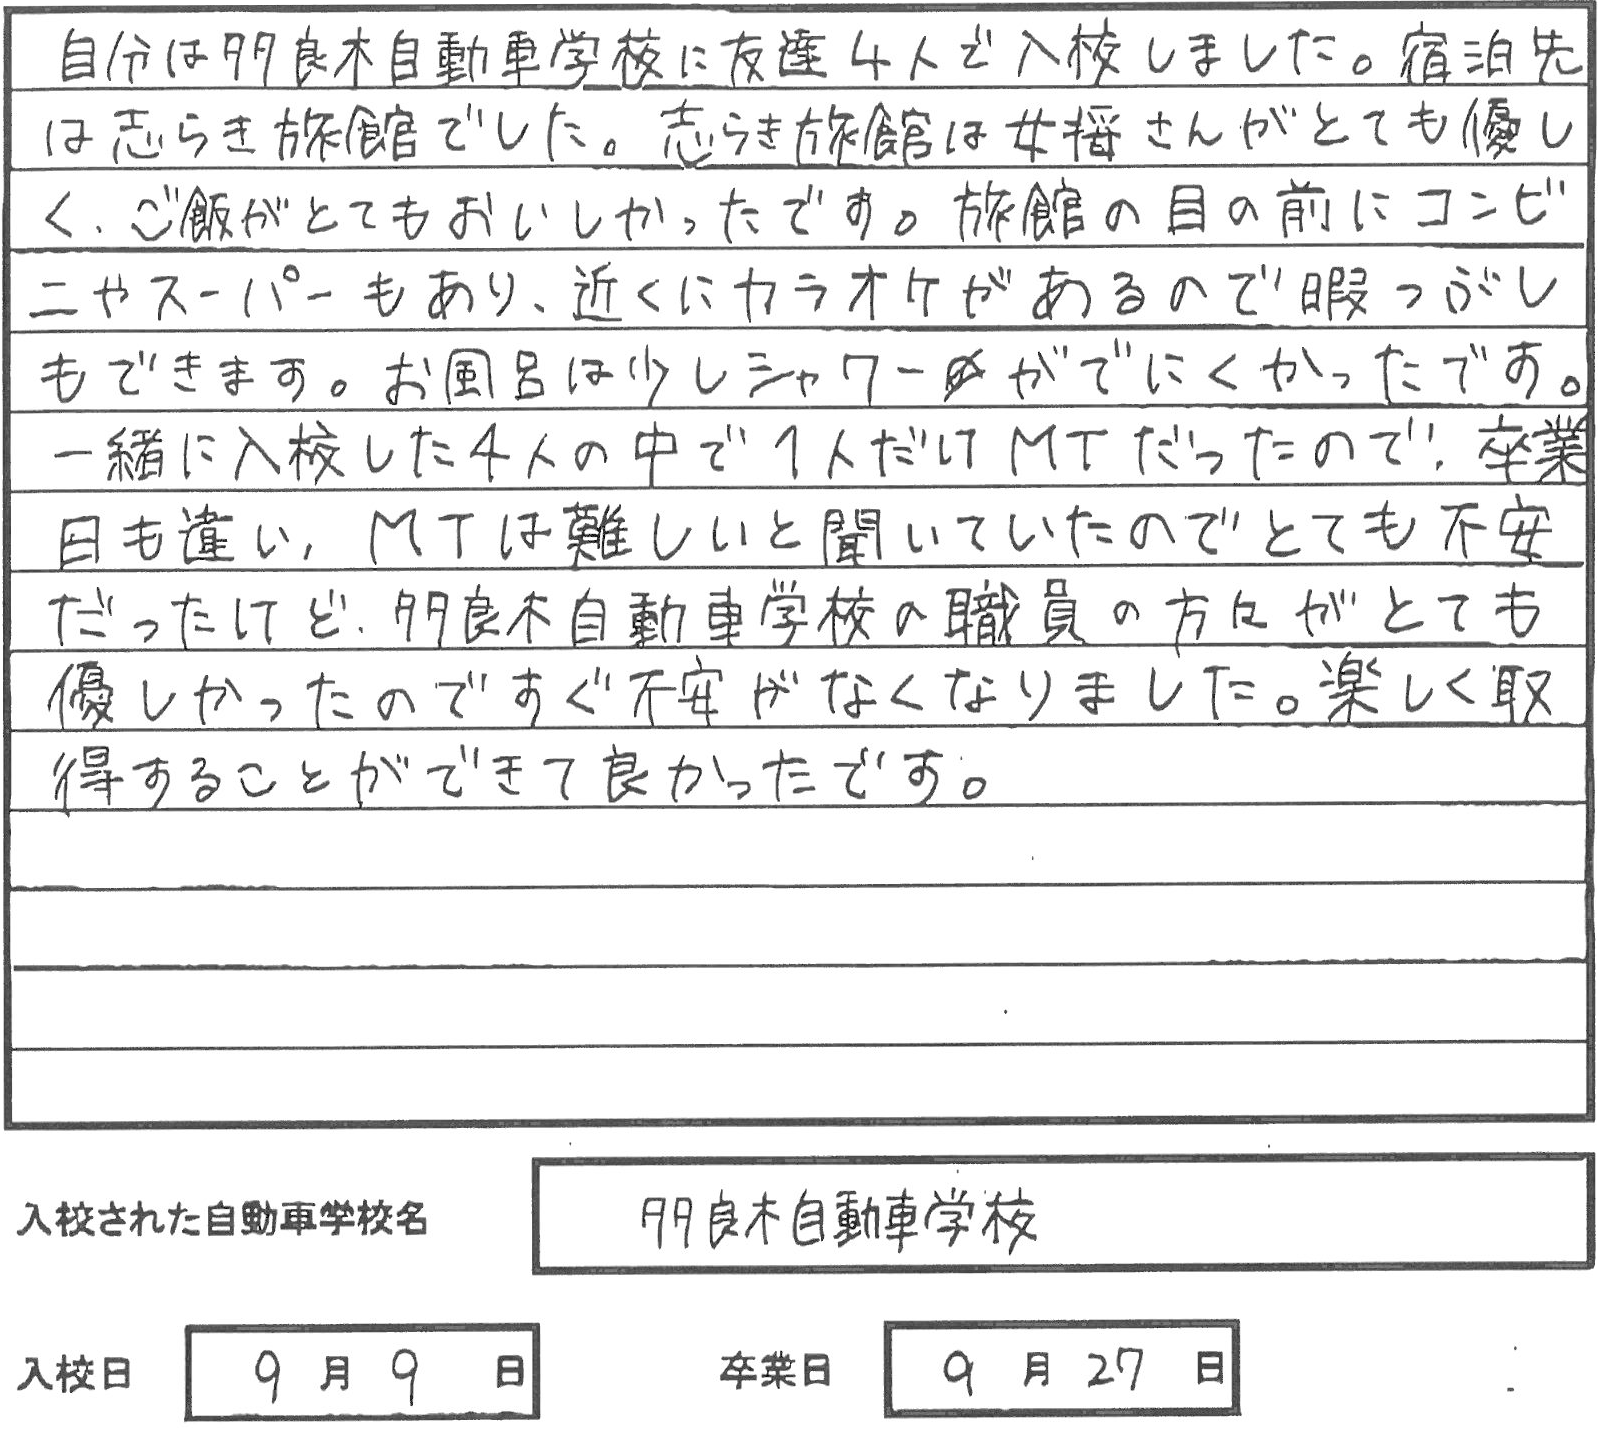 自分は多良木自動車学校に友達4人で入校しました。宿泊先
は志らき旅館でした。志らき旅館は女将さんがとても優し
く、ご飯がとてもおいしかったです。旅館の目の前にコンビ
ニやスーパーもあり、近くにカラオケがあるので暇つぶし
もできます。お風呂は少しシャワーがでにくかったです。
一緒に入校した4人の中で1人だけMTだったので、卒業
日も違い、MTは難しいと聞いていたのでとても不安
だったけど、多良木自動車学校の職員の方々がとても
優しかったのですぐ不安がなくなりました。楽しく取
得することができて良かったです。
入校された自動車学校名 多良木自動車学校
入校日 9月9日 卒業日 9月27日